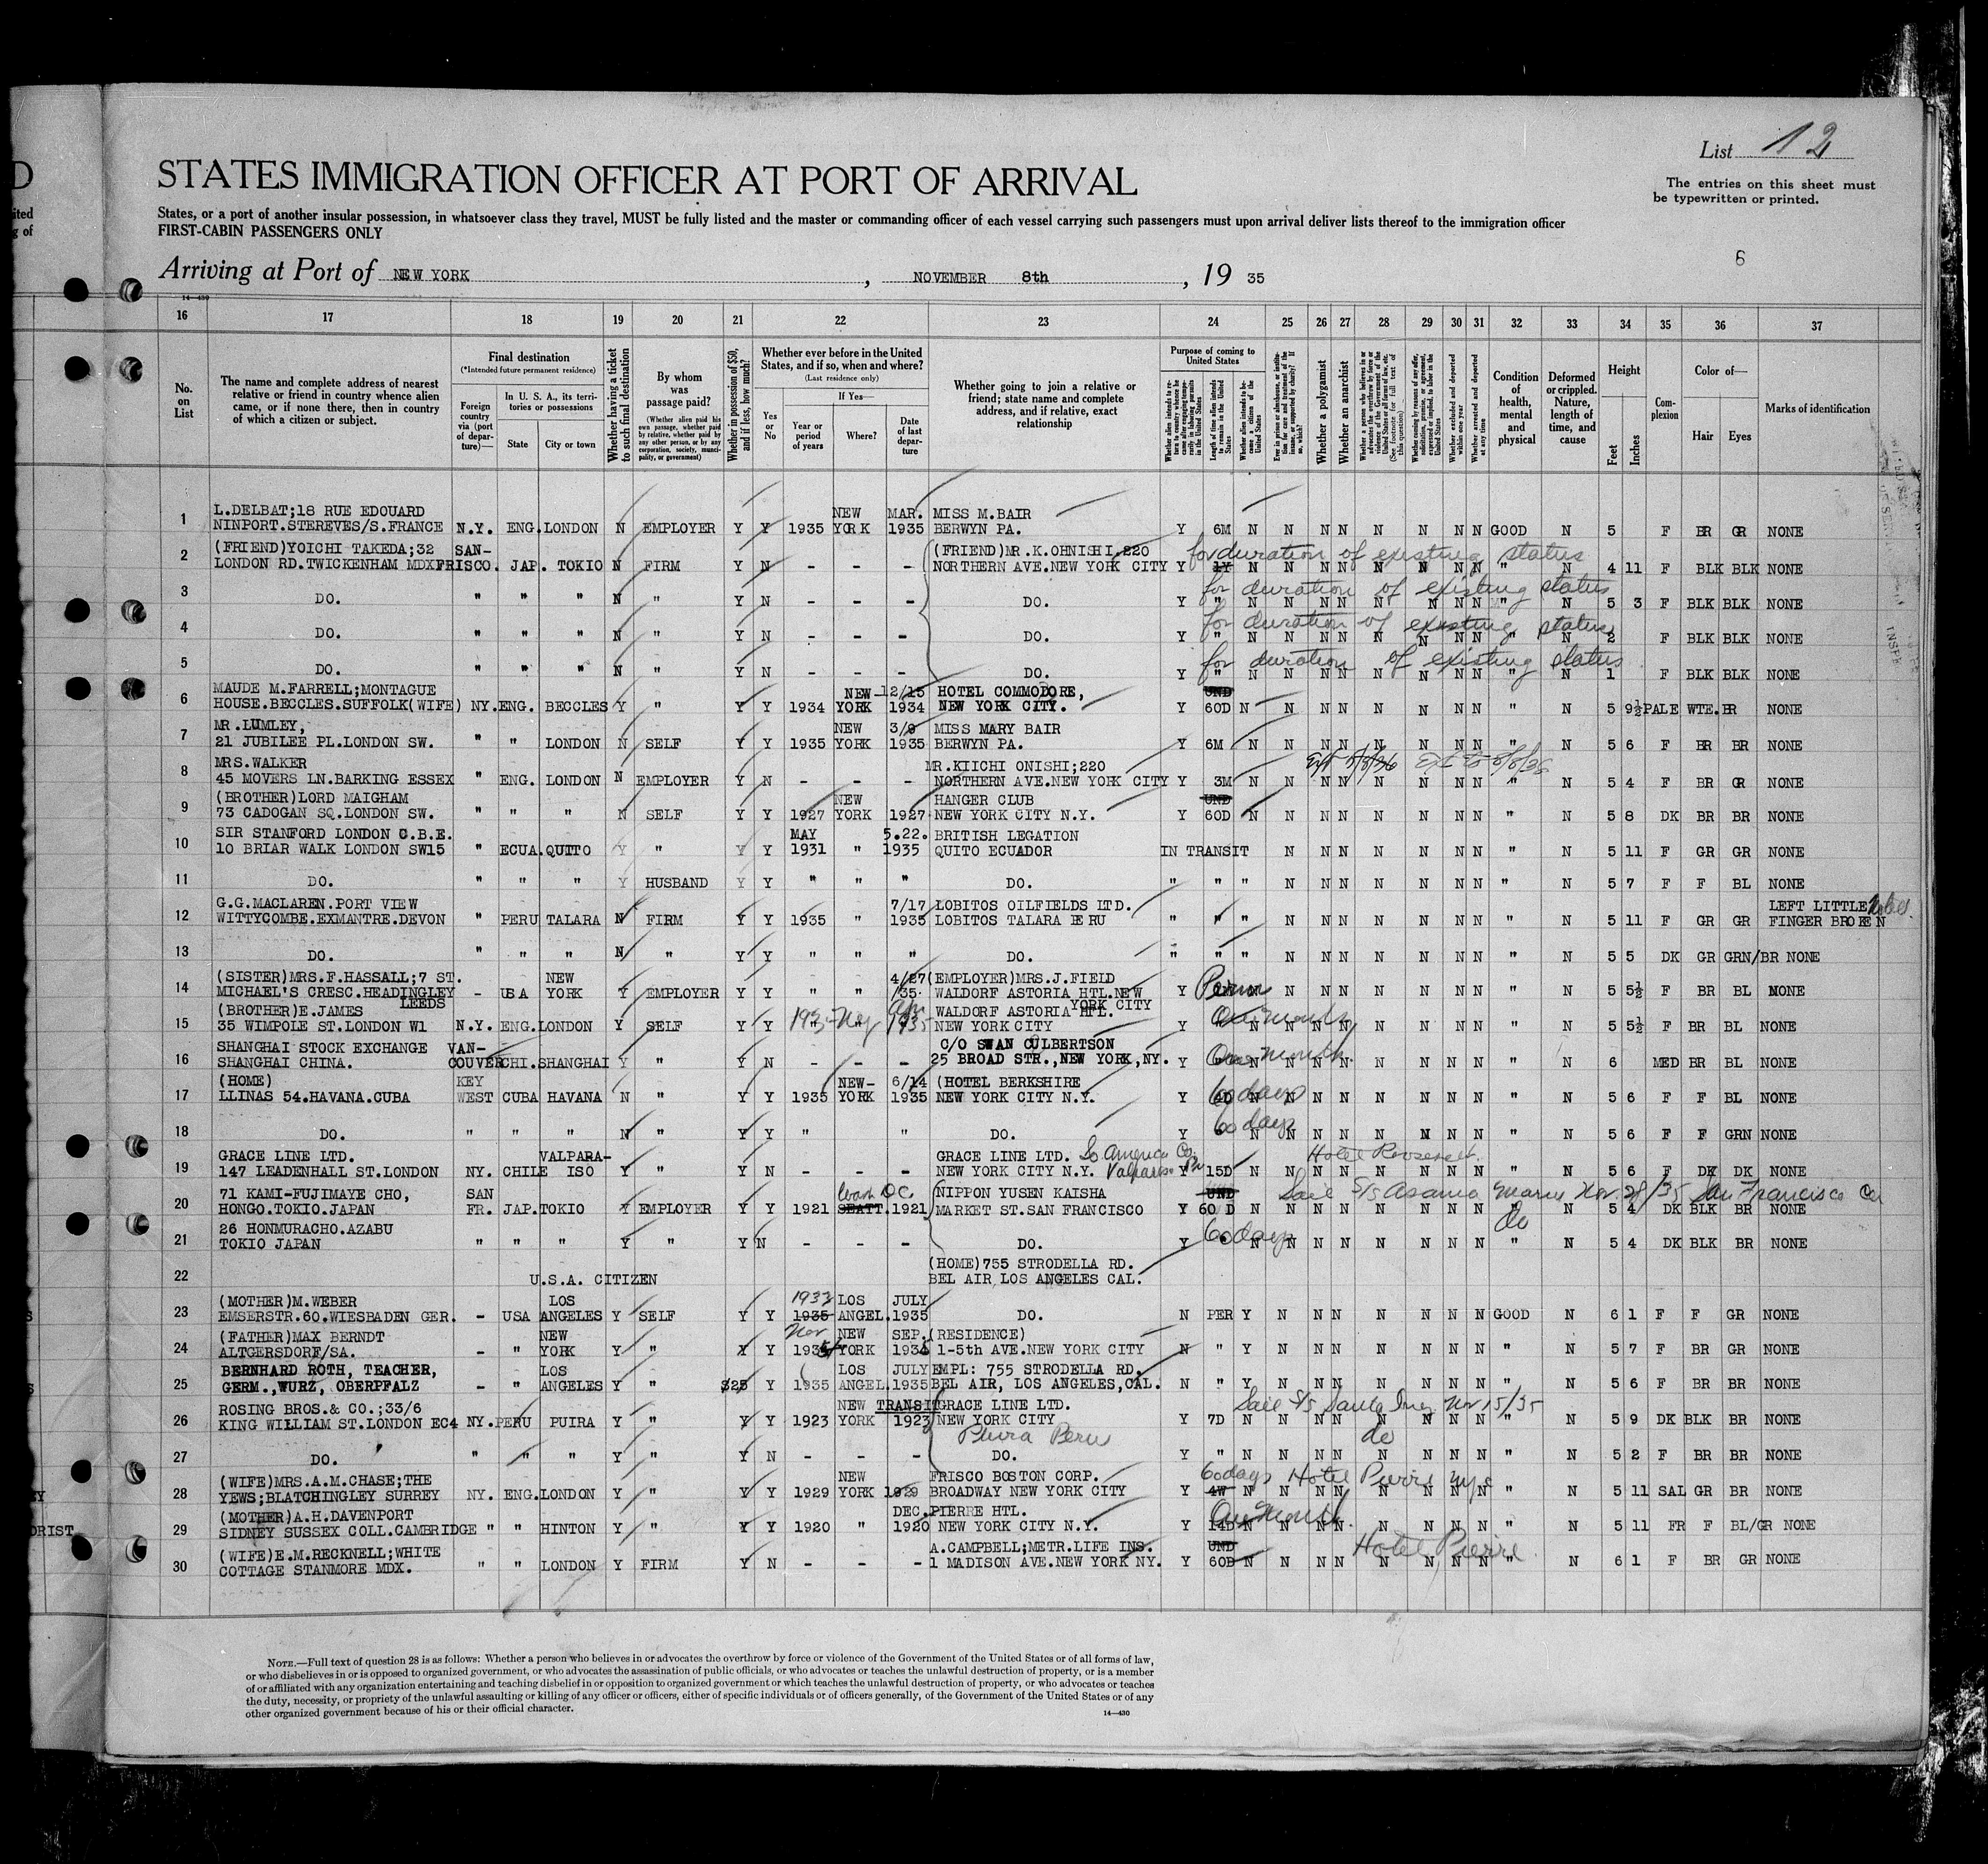 List 12
STATES IMMIGRATION OFFICER AT PORT OF ARRIVAL
The entries on this sheet must
be typewritten or printed.
States, or a port of another insular possession, in whatsoever class they travel, MUST be fully listed and the master or commanding officer of each vessel carrying such passengers must upon arrival deliver lists thereof to the immigration officer
FIRST-CABIN PASSENGERS ONLY
6
Arriving at Port of NEW YORK , NOVEMBER 8th , 19 35
14—430
16 17 18 19 20 21 22 23 24 25 26 27 28 29 30 31 32 33 34 35 36 37
No. on List
The name and complete address of nearest relative or friend in country whence alien came, or if none there, then in country of which a citizen or subject.
Final destination
(*Intended future permanent residence)
Foreign country via (port of departure)—
In U. S. A., its territories or possessions
State City or town
Whether having a ticket to such final destination
By whom was passage paid?
(Whether alien paid his own passage, whether paid by relative, whether paid by any other person, or by any corporation, society, municipality, or government)
Whether in possession of $50, and if less, how much?
Whether ever before in the United States, and if so, when and where?
(Last residence only)
Yes or No
If Yes—
Year or period of years Where? Date of last departure
Whether going to join a relative or friend; state name and complete address, and if relative, exact relationship
Purpose of coming to United States
Length of time alien intends to remain in the United States
Whether alien intends to become a citizen of the United States
Whether a polygamist
Whether an anarchist
Condition of health, mental and physical
Deformed or crippled. Nature, length of time, and cause
Height
Feet Inches
Complexion
Color of—
Hair Eyes
Marks of identification
1 L.DELBAT;18 RUE EDOUARD NEW MAR. MISS M.BAIR
NINPORT.STEREVES/S.FRANCE N.Y. ENG. LONDON N EMPLOYER Y Y 1935 YORK 1935 BERWYN PA. Y 6M N N N N N N N N GOOD N 5 F BR GR NONE
2 (FRIEND)YOICHI TAKEDA;32 SAN- (FRIEND)MR.K.OHNISHI.220 for duration of existing status
LONDON RD.TWICKENHAM MDX FRISCO. JAP. TOKIO N FIRM Y N - - - NORTHERN AVE.NEW YORK CITY Y 1Y N N N N N N N N " N 4 11 F BLK BLK NONE
for duration of existing status
3 DO. " " " N " Y N - - - DO. Y " N N N N N N N N " N 5 3 F BLK BLK NONE
for duration of existing status
4 DO. " " " N " Y N - - - DO. Y " N N N N N N N N " N 2 F BLK BLK NONE
for duration of existing status
5 DO. " " " N " Y N - - - DO. Y " N N N N N N N N " N 1 F BLK BLK NONE
6 MAUDE M.FARRELL;MONTAGUE NEW- 12/15 HOTEL COMMODORE, UND
HOUSE.BECCLES.SUFFOLK(WIFE) NY. ENG. BECCLES Y " Y Y 1934 YORK 1934 NEW YORK CITY. Y 60D N N N N N N N N " N 5 9½ PALE WTE. BR NONE
7 MR.LUMLEY, NEW 3/9 MISS MARY BAIR
21 JUBILEE PL.LONDON SW. " " LONDON N SELF Y Y 1935 YORK 1935 BERWYN PA. Y 6M N N N N N N N N " N 5 6 F BR BR NONE
8 MRS.WALKER MR.KIICHI ONISHI;220
45 MOVERS LN.BARKING ESSEX " ENG. LONDON N EMPLOYER Y N - - - NORTHERN AVE.NEW YORK CITY Y 3M N N N N N N N N " N 5 4 F BR GR NONE
9 (BROTHER)LORD MAIGHAM NEW HANGER CLUB UND
73 CADOGAN SQ.LONDON SW. " " " N SELF Y Y 1927 YORK 1927 NEW YORK CITY N.Y. Y 60D N N N N N N N N " N 5 8 DK BR BR NONE
10 SIR STANFORD LONDON C.B.E. MAY 5.22. BRITISH LEGATION
10 BRIAR WALK LONDON SW15 " ECUA. QUITO Y " Y Y 1931 " 1935 QUITO ECUADOR IN TRANSIT N N N N N N N " N 5 11 F GR GR NONE
11 DO. " " " Y HUSBAND Y Y " " " DO. " " " N N N N N N N " N 5 7 F F BL NONE
12 G.G.MACLAREN.PORT VIEW 7/17 LOBITOS OILFIELDS LTD. LEFT LITTLE
WITTYCOMBE.EXMANTRE.DEVON " PERU TALARA N FIRM Y Y 1935 " 1935 LOBITOS TALARA PERU " " " N N N N N N N " N 5 11 F GR GR FINGER BROKEN
13 DO. " " " N " Y Y " " " DO. " " " N N N N N N N " N 5 5 DK GR GRN/BR NONE
14 (SISTER)MRS.F.HASSALL;7 ST. NEW 4/27 (EMPLOYER)MRS.J.FIELD
MICHAEL'S CRESC.HEADINGLEY - USA YORK Y EMPLOYER Y Y " " /35 WALDORF ASTORIA HTL.NEW Y Perm N N N N N N N " N 5 5½ F BR BL NONE
LEEDS YORK CITY
15 (BROTHER)E.JAMES WALDORF ASTORIA HTL. One month
35 WIMPOLE ST.LONDON W1 N.Y. ENG. LONDON Y SELF Y Y 1935 1935 NEW YORK CITY Y N N N N N N N N " N 5 5½ F BR BL NONE
16 SHANGHAI STOCK EXCHANGE VAN- C/O SWAN CULBERTSON One month
SHANGHAI CHINA. COUVER CHI. SHANGHAI Y " Y N - - - 25 BROAD STR.,NEW YORK,NY. Y N N N N N N N N " N 6 MED BR BL NONE
17 (HOME) KEY NEW- 6/14 (HOTEL BERKSHIRE
LLINAS 54.HAVANA.CUBA WEST CUBA HAVANA N " Y Y 1935 YORK 1935 NEW YORK CITY N.Y. Y 60 days N N N N N N N N " N 5 6 F F BL NONE
18 DO. " " " N " Y Y " " DO. Y 60 days N N N N N N N N " N 5 6 F F GRN NONE
19 GRACE LINE LTD. VALPARA- GRACE LINE LTD. So America Co. Hotel Roosevelt.
147 LEADENHALL ST.LONDON NY. CHILE ISO Y " Y N - - - NEW YORK CITY N.Y. Valparaiso Y 15D N N N N N N N N " N 5 6 F DK DK NONE
20 71 KAMI-FUJIMAYE CHO, SAN Wash DC NIPPON YUSEN KAISHA UND Sail S/S Asama Maru Nov. 28/35 San Francisco Ca
HONGO.TOKIO.JAPAN FR. JAP. TOKIO Y EMPLOYER Y Y 1921 SEATT. 1921 MARKET ST.SAN FRANCISCO Y 60 D N N N N N N N N " N 5 4 DK BLK BR NONE
21 26 HONMURACHO.AZABU 60 days do
TOKIO JAPAN " " " Y " Y N - - - DO. Y N N N N N N N N " N 5 4 DK BLK BR NONE
22 (HOME)755 STRODELLA RD.
U.S.A. CITIZEN BEL AIR LOS ANGELES CAL.
23 (MOTHER)M.WEBER LOS 1933 LOS JULY
EMSERSTR.60.WIESBADEN GER. - USA ANGELES Y SELF Y Y 1935 ANGEL. 1935 DO. N PER Y N N N N N N N GOOD N 6 1 F F GR NONE
24 (FATHER)MAX BERNDT NEW Nov NEW SEP. (RESIDENCE)
ALTGERSDORF/SA. - " YORK Y " Y Y YORK 1-5th AVE.NEW YORK CITY N " Y N N N N N N N " N 5 7 F BR GR NONE
25 BERNHARD ROTH, TEACHER, LOS LOS JULY EMPL: 755 STRODELLA RD.
GERM.,WURZ, OBERPFALZ - " ANGELES Y " $25 Y 1935 ANGEL. 1935 BEL AIR, LOS ANGELES,CAL. N " Y N N N N N N N " N 5 6 F BR BR NONE
26 ROSING BROS.& CO.;33/6 NEW TRANSIT GRACE LINE LTD. Sail S/S Santa Inez Nov 15/35
KING WILLIAM ST.LONDON EC4 NY. PERU PUIRA Y " Y Y 1923 YORK 1923 NEW YORK CITY Y 7D N N N N N N N N " N 5 9 DK BLK BR NONE
Piura Peru do
27 DO. " " " Y " Y N - - - DO. Y " N N N N N N N N " N 5 2 F BR BR NONE
28 (WIFE)MRS.A.M.CHASE;THE NEW FRISCO BOSTON CORP. 60 days Hotel Pierre nyc
YEWS;BLATCHINGLEY SURREY NY. ENG. LONDON Y " Y Y 1929 YORK 1929 BROADWAY NEW YORK CITY Y 4W N N N N N N N N " N 5 11 SAL GR BR NONE
29 (MOTHER)A.H.DAVENPORT DEC. PIERRE HTL. One month.
SIDNEY SUSSEX COLL.CAMBRIDGE " " HINTON Y " Y Y 1920 " 1920 NEW YORK CITY N.Y. Y 14D N N N N N N N N " N 5 11 FR F BL/GR NONE
30 (WIFE)E.M.RECKNELL;WHITE A.CAMPBELL;METR.LIFE INS. UND Hotel Pierre
COTTAGE STANMORE MDX. " " LONDON Y FIRM Y N - - - 1 MADISON AVE.NEW YORK NY. Y 60D N N N N N N N N " N 6 1 F BR GR NONE
NOTE.—Full text of question 28 is as follows: Whether a person who believes in or advocates the overthrow by force or violence of the Government of the United States or of all forms of law,
or who disbelieves in or is opposed to organized government, or who advocates the assassination of public officials, or who advocates or teaches the unlawful destruction of property, or is a member
of or affiliated with any organization entertaining and teaching disbelief in or opposition to organized government or which teaches the unlawful destruction of property, or who advocates or teaches
the duty, necessity, or propriety of the unlawful assaulting or killing of any officer or officers, either of specific individuals or of officers generally, of the Government of the United States or of any
other organized government because of his or their official character.
14—430